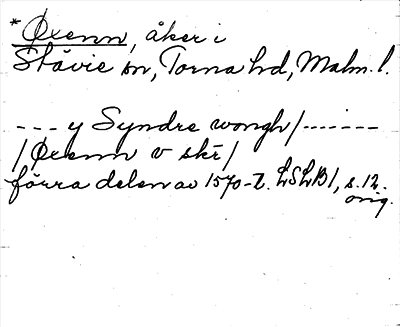 *Øxenn, åker i
Stävie sn, Torna hd, Malm. l.
--- y Syndre wongh/-------
/Øxenn v skr/
förra delen av 1570-t. LSLB1, s. 12.
orig.